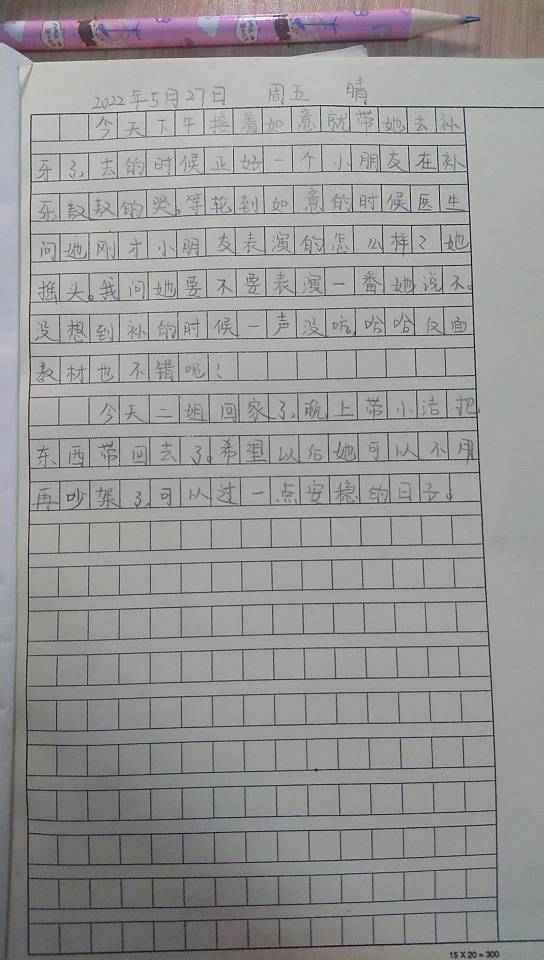 2022年5月27日 周五 晴
今天下午接着如意就带她去补
牙了,去的时候正好一个小朋友在补
牙,嗷嗷的哭。等轮到如意的时候医生
问她刚才小朋友表演的怎么样?她
摇头。我问她要不要表演一番她说不。
没想到补的时候一声没吭,哈哈反面
教材也不错呢!
今天二姐回家了,晚上带小洁把
东西带回去了。希望以后她可以不用
再吵架了,可以过一点安稳的日子。
15×20=300